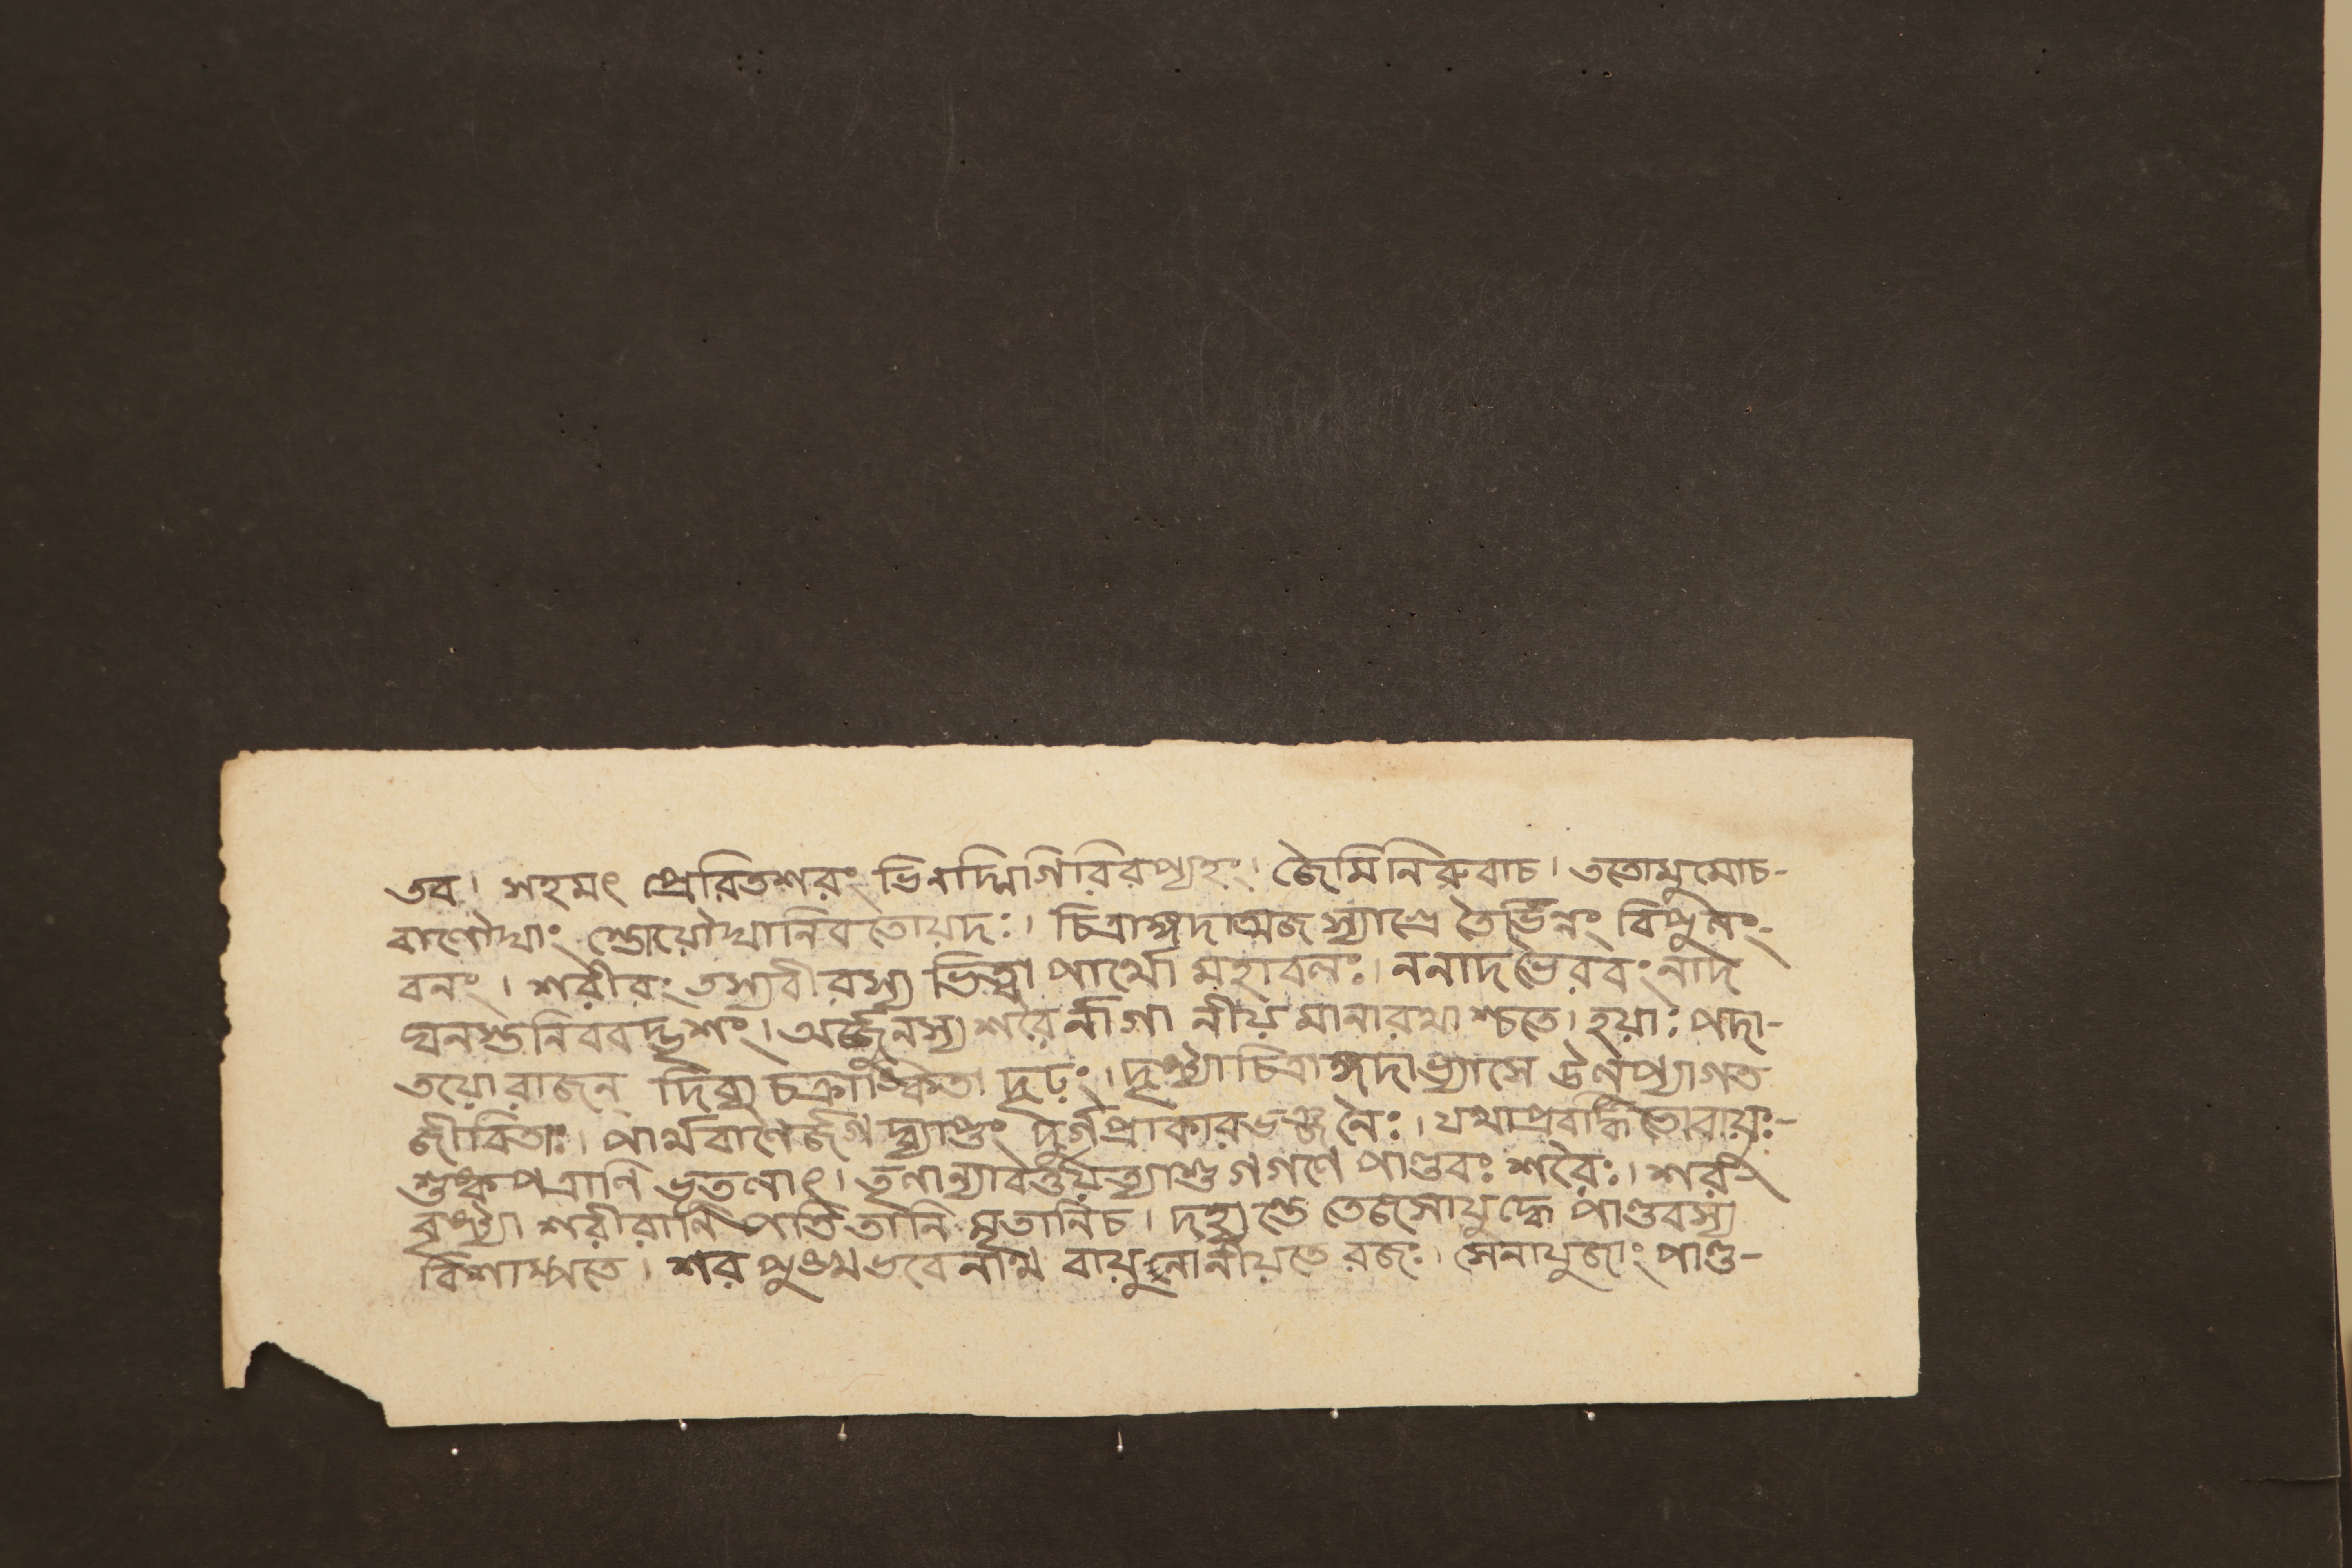 তব। সহমৎ প্রেরিতশরং ভিনদ্মিগিরিরপ্যহং। জৈমিনিরুবাচ। ততোমুমোচ-
বাণৌঘাং স্তোয়ৌঘানিবতোয়দঃ। চিত্রাঙ্গদাঅজস্যাশ্রে তৈর্ভিন্নং বিপুলং-
বলং। শরীরং তস্যবীরস্য ভিত্ত্বা পার্থো মহাবলঃ। ননাদভৈরবং নাদং
ঘনশুনিববদ্ভৃশং। অর্জ্জুনস্য শরৈর্নাগা নীয়মানারথাশ্চতে। হয়াঃ পদা-
তয়োরাজন্ দিব্য চক্রাঙ্কিতা দৃঢ়ং। দৃষ্ট্যাচিত্রাঙ্গদাভ্যাসে
জীবিতাঃ। পার্থবাণৈর্জগদ্ব্যাপ্তং দুর্গপ্রাকারভঞ্জনৈঃ। যথাপ্রবর্দ্ধিতোবায়ুঃ-
শুষ্কপত্রাণি ভূতলাৎ। তৃণান্যাবর্ত্তয়ত্যাশু গগণে পাণ্ডবঃ শরৈঃ। শর-
বৃষ্ট্যা শরীরাণি পাতিতানি মৃতানিচ। দহ্যন্তে তেজসোযুদ্ধে পাণ্ডবস্য
বিশাম্পতে। শর পুঙ্খভবেনাথ বায়ুনানীয়তে রজঃ। সেনাযুজাং পাণ্ড-